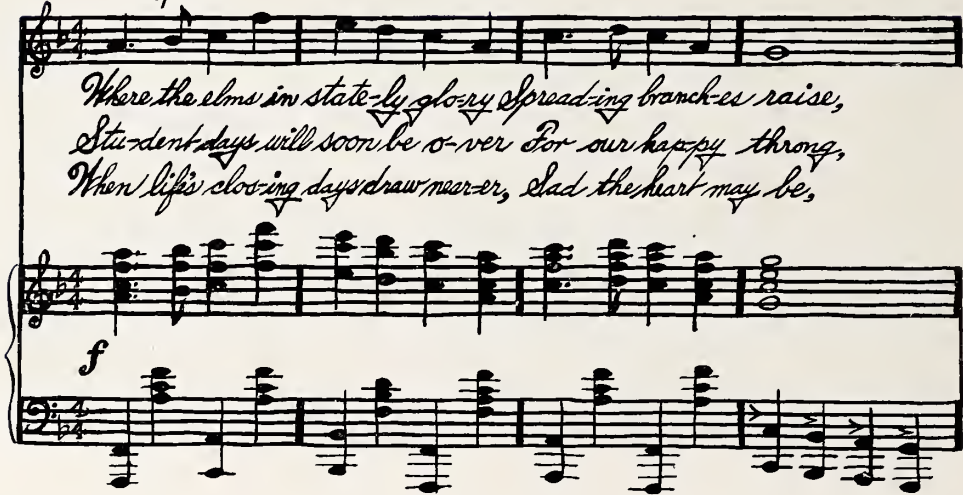 Where the elms in state-ly glo-ry Spread-ing branch-es raise,
Stu-dent days will soon be o-ver For our hap-py throng,
When life's clos-ing days draw near-er, Sad the heart may be,
f